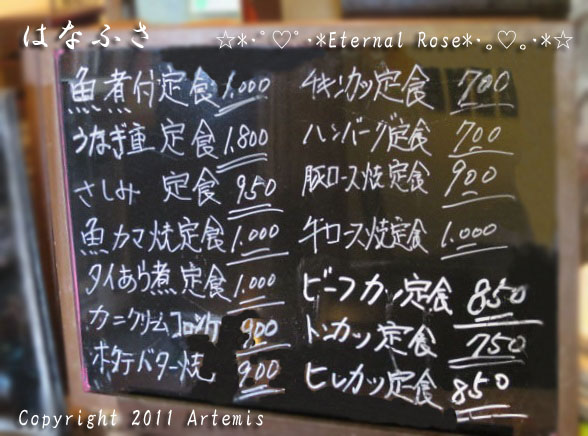 はなふさ
☆*･ﾟ♡ﾟ･*Eternal Rose*･｡♡｡･*☆
魚煮付定食 1,000
うなぎ重定食 1,800
さしみ 定食 950
魚カマ焼定食 1,000
タイあら煮定食 1,000
カニクリームコロッケ 900
ホタテバター焼 900
チキンカツ定食 700
ハンバーグ定食 700
豚ロース焼定食 900
牛ロース焼定食 1,000
ビーフカツ定食 850
トンカツ定食 750
ヒレカツ定食 850
Copyright 2011 Artemis